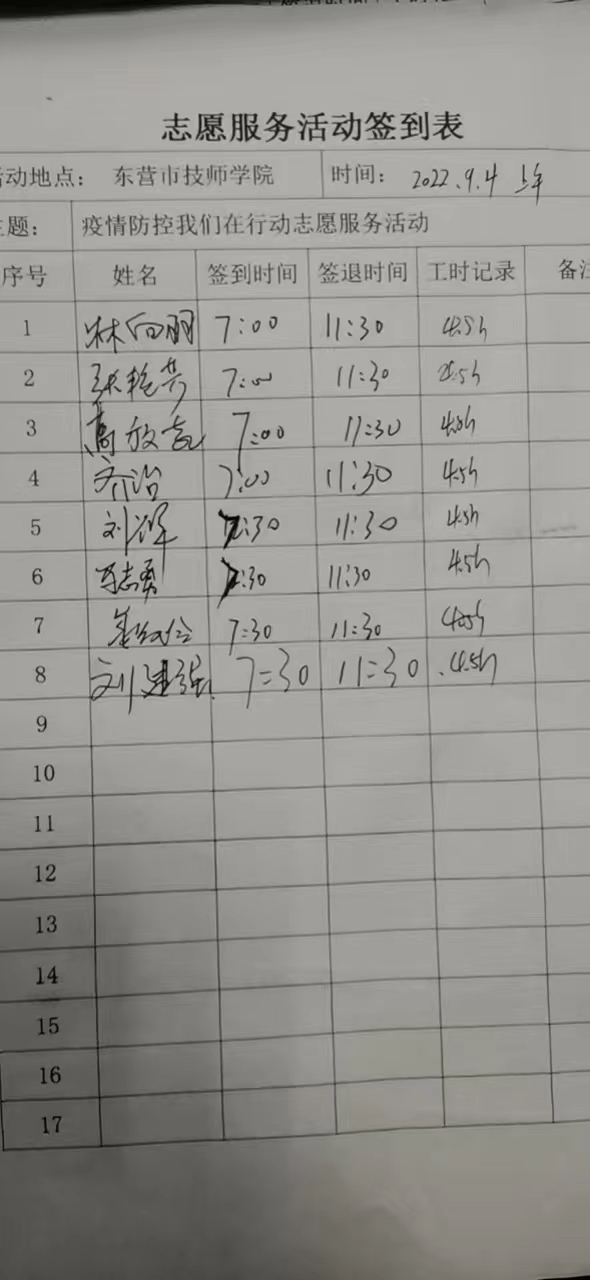 志愿服务活动签到表
活动地点： 东营市技师学院 时间： 2022.9.4 上午
主题： 疫情防控我们在行动志愿服务活动
序号 姓名 签到时间 签退时间 工时记录 备注
1 林向羽 7:00 11:30 4.5h
2 7:00 11:30 4.5h
3 7:00 11:30
4 乔治 7:00 11:30 4.5h
5 7:30 11:30 4.5h
6 7:30 11:30 4.5h
7 7:30 11:30 4.5h
8 刘建强 7:30 11:30 4.5h
9
10
11
12
13
14
15
16
17